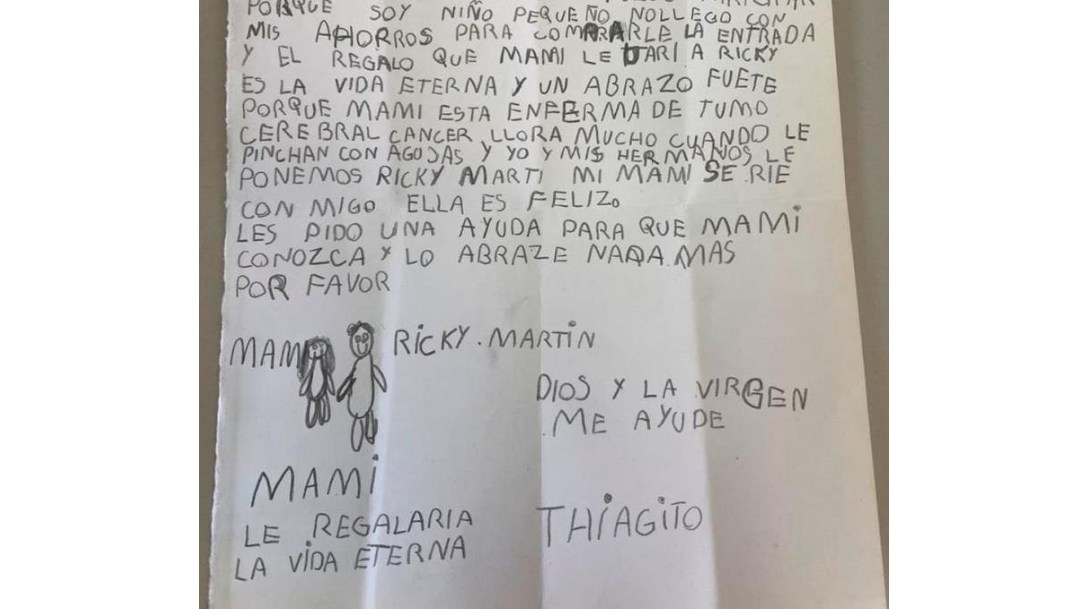 PORQUE SOY NIÑO PEQUEÑO NOLLEGO CON
MIS AHORROS PARA COMPRARLE LA ENTRADA
Y EL REGALO QUE MAMI LE DARI A RICKY
ES LA VIDA ETERNA Y UN ABRAZO FUETE
PORQUE MAMI ESTA ENFERMA DE TUMO
CEREBRAL CANCER LLORA MUCHO CUANDO LE
PINCHAN CON AGUJAS Y YO Y MIS HERMANOS LE
PONEMOS RICKY MARTI MI MAMI SE RIE
CON MIGO ELLA ES FELIZ.
LES PIDO UNA AYUDA PARA QUE MAMI
CONOZCA Y LO ABRAZE NADA MAS
POR FAVOR
MAMI RICKY. MARTIN
DIOS Y LA VIRGEN
ME AYUDE
MAMI
LE REGALARIA
LA VIDA ETERNA
THIAGITO